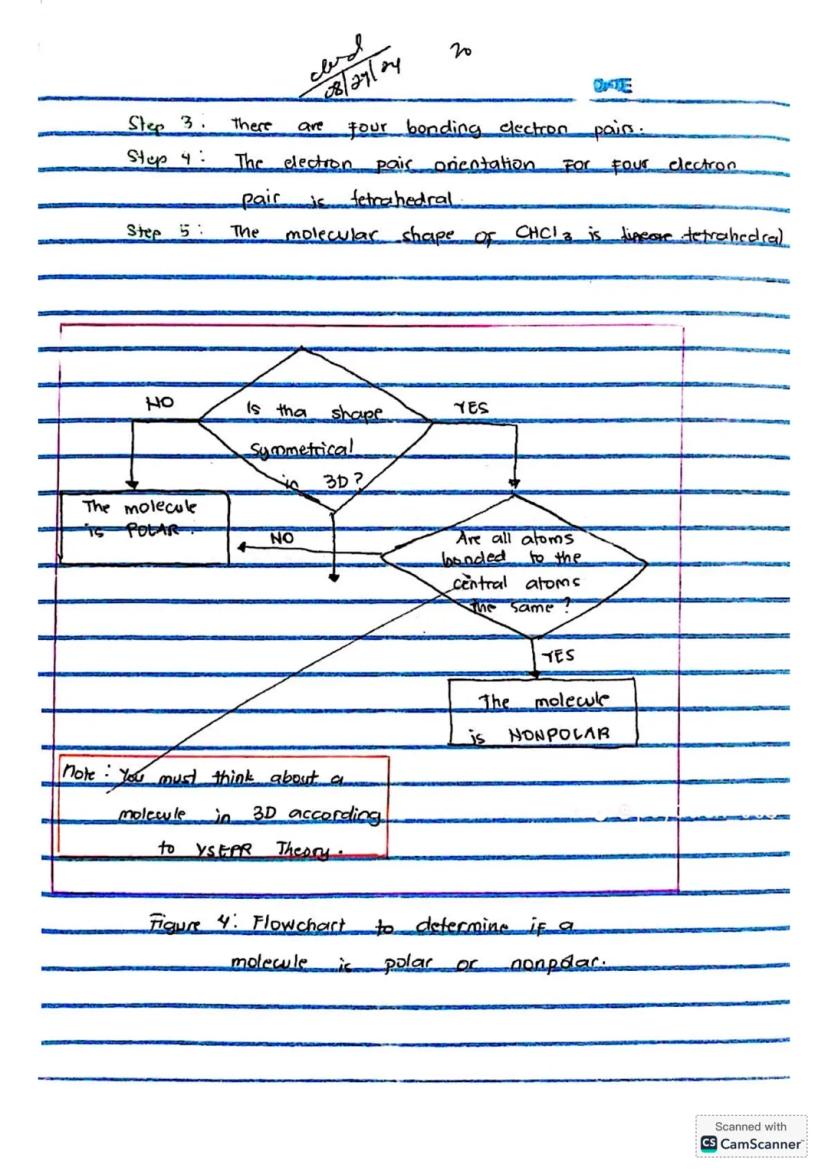 08/29/24
20
DATE
Step 3: There are four bonding electron pairs.
Step 4: The electron pair orientation For four electron
pair is tetrahedral.
Step 5: The molecular shape of CHCl3 is linear tetrahedral
NO
Is tha shape
YES
symmetrical
in 3D?
The molecule
is POLAR.
NO
Are all atoms
bonded to the
central atoms
the same?
YES
The molecule
is NONPOLAR
Note: You must think about a
molecule in 3D according
to VSEPR Theory.
Figure 4: Flowchart to determine if a
molecule is polar or nonpolar.
Scanned with
CS CamScanner